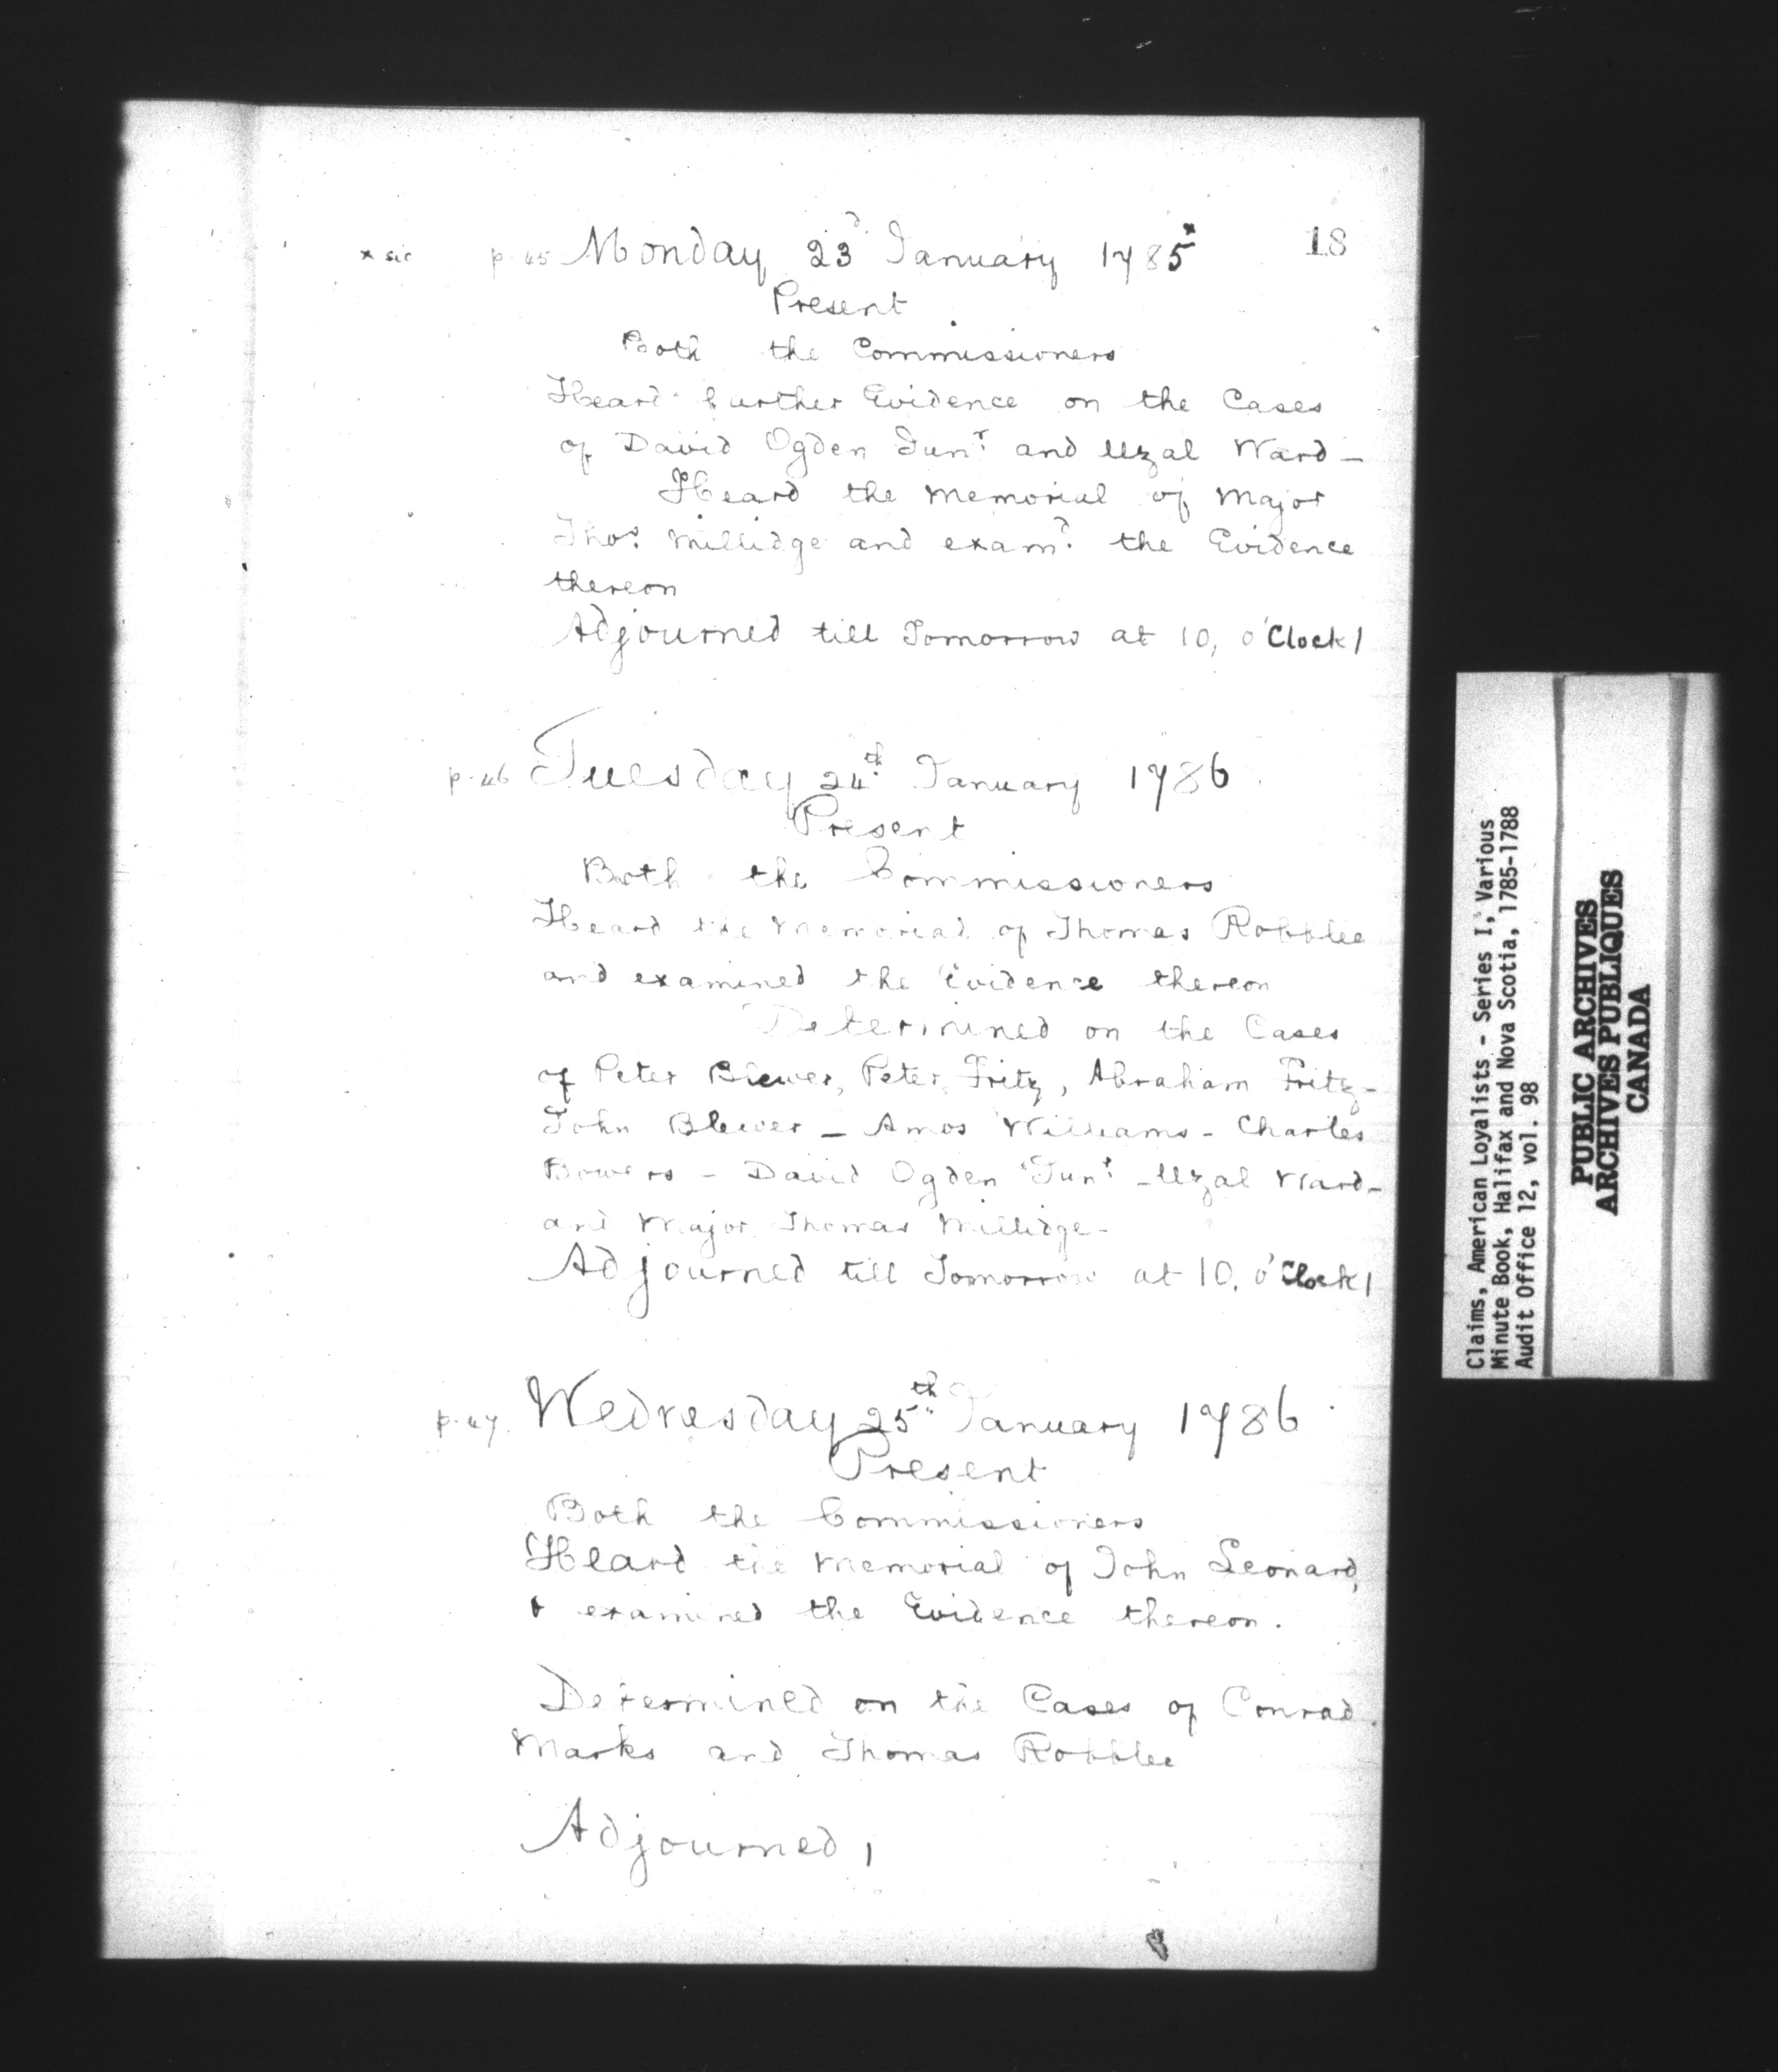 18
* sic p. 45 Monday 23d January 1785*
Present
Both the Commissioners
Heard further Evidence on the Cases
of David Ogden Junr. and Uzal Ward -
Heard the Memorial of Major
Thos. Millidge and examd. the Evidence
thereon
Adjourned till Tomorrow at 10, o'Clock /
p. 46 Tuesday 24th. January 1786
Present
Both the Commissioners
Heard the Memorial of Thomas Robblee
and examined the Evidence thereon
Determined on the Cases
of Peter Blewer, Peter Fritz, Abraham Fritz -
John Blewer - Amos Williams - Charles
Bowers - David Ogden Junr. - Uzal Ward -
and Major Thomas Millidge -
Adjourned till Tomorrow at 10, o'Clock /
p. 47. Wednesday 25th. January 1786
Present
Both the Commissioners
Heard the Memorial of John Leonard,
& examined the Evidence thereon.
Determined on the Cases of Conrad
Marks and Thomas Robblee
Adjourned /
Claims, American Loyalists - Series I, Various
Minute Book, Halifax and Nova Scotia, 1785-1788
Audit Office 12, vol. 98
PUBLIC ARCHIVES
ARCHIVES PUBLIQUES
CANADA